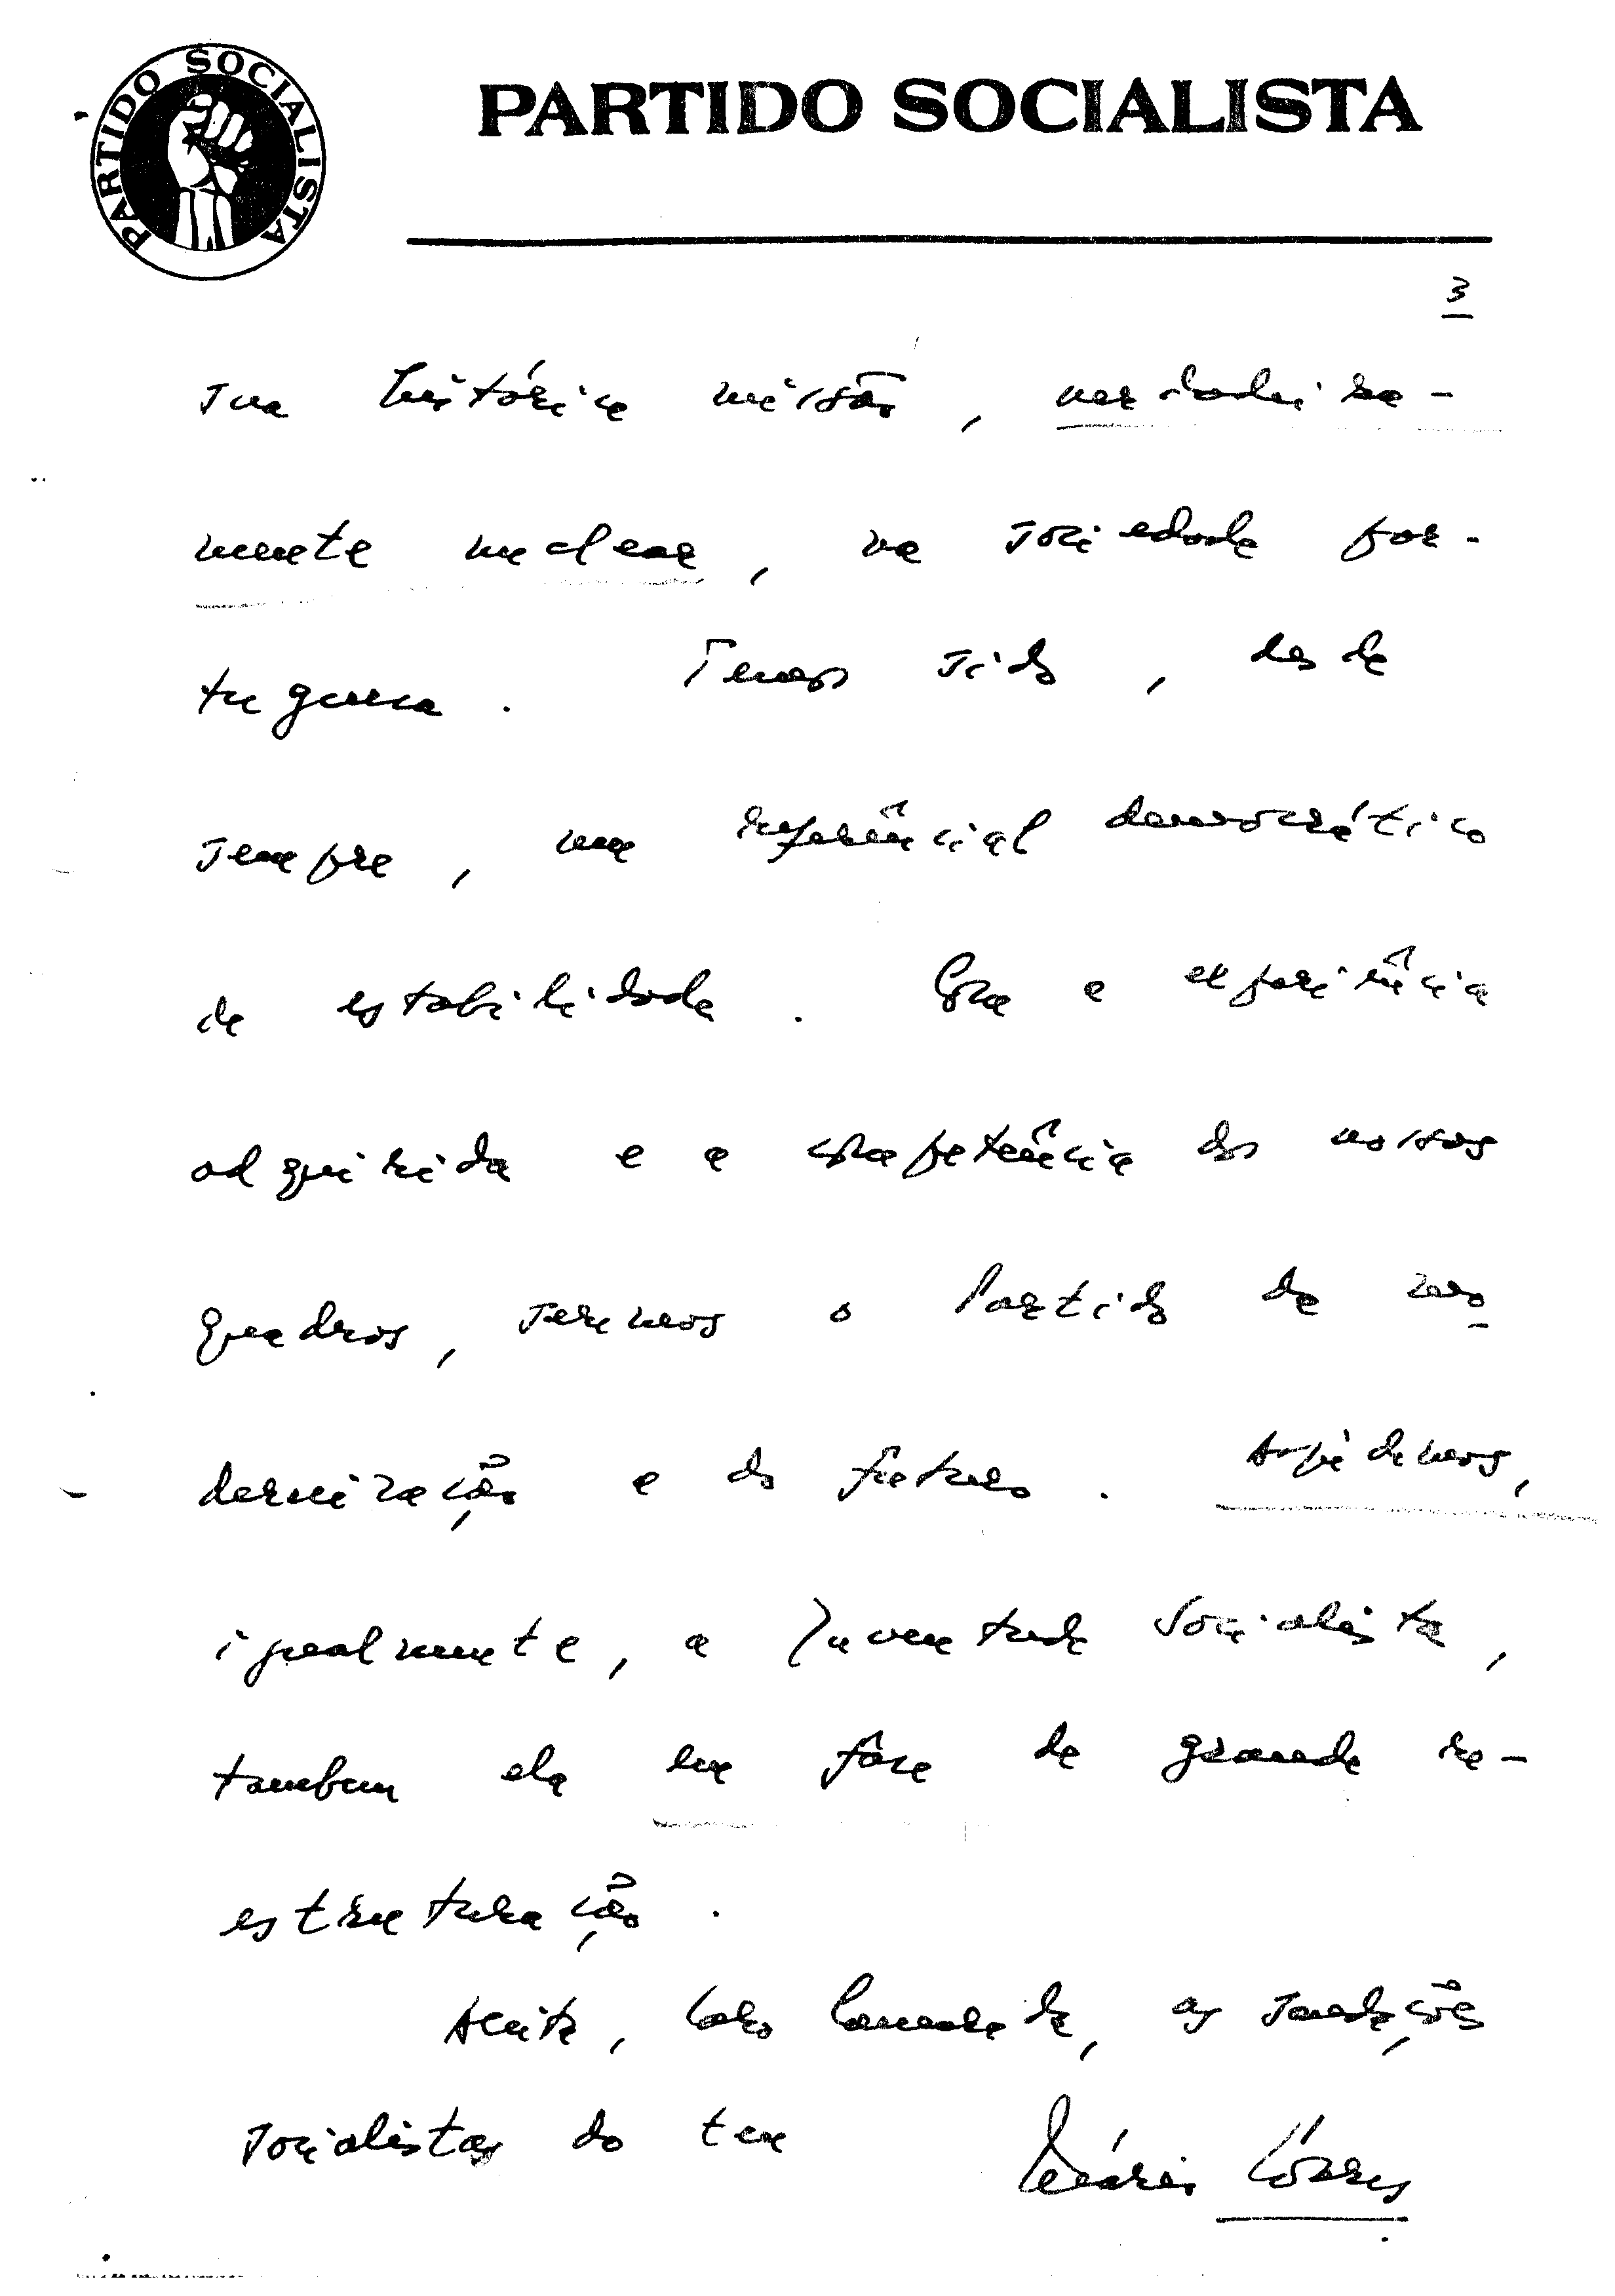 PARTIDO SOCIALISTA
PARTIDO SOCIALISTA
3
sua histórica missão, verdadeira-
mente nuclear, na sociedade por-
tuguesa. Temos sido, desde
sempre, um referêncial democrático
de estabilidade. Com a experiência
adquirida e a competência dos nossos
quadros, seremos o Partido da mo-
dernização e do futuro.
igualmente, a Juventude Socialista,
tambem ela em fase de grande re-
estruturação.
Aceita, Caro Camarada, as saudações
socialistas do teu
Mário Soares